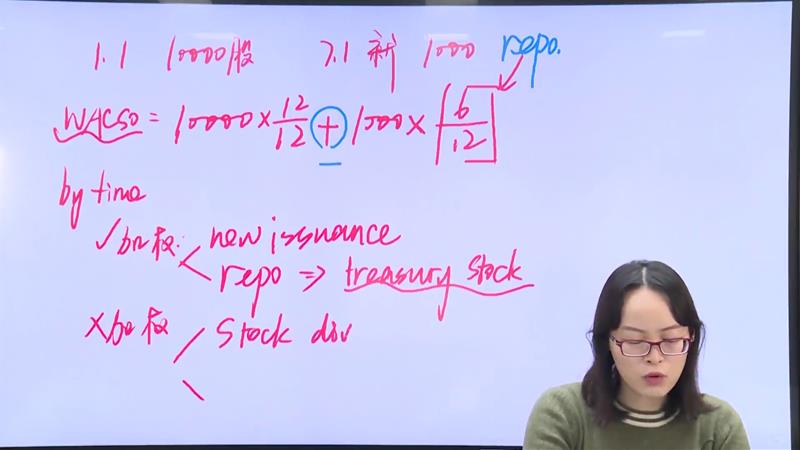 1.1 10000股 7.1 新 1000 repo.
WACSO = 10000 × 12/12 + 1000 × [6/12]
by time
✓加权: new issuance
repo ⇒ treasury stock
×加权 Stock div